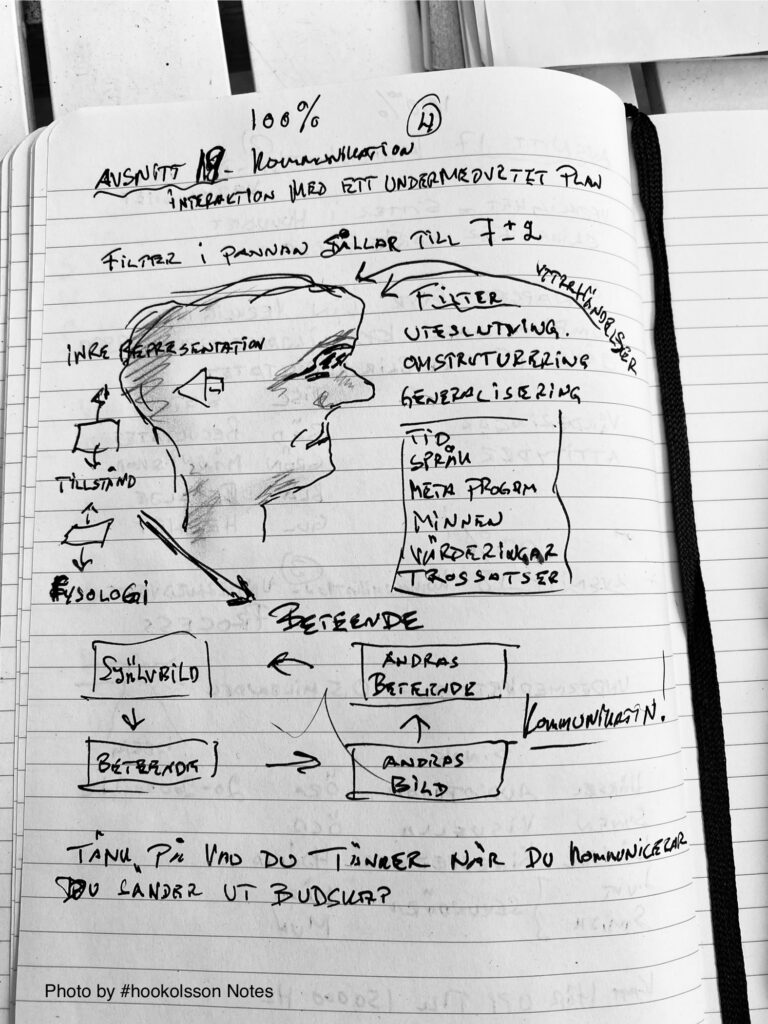 100%
4
AVSNITT 18 - KOMMUNIKATION
INTERAKTION MED ETT UNDERMEDVETET PLAN
FILTER I PANNAN SÅLLAR TILL 7±2
YTTERHÄNDELSER
FILTER
UTESLUTNING.
OMSTRUTURERING
GENERALISERING
INRE REPRESENTATION
TID
SPRÅK
META PROGAM
MINNEN
VÄRDERINGAR
TROSSATSER
TILLSTÅND
FYSOLOGI
BETEENDE
SJÄLVBILD
ANDRAS
BETEENDE
KOMMUNIKATIN.
BETEENDE
ANDRAS
BILD
TÄNK PÅ VAD DU TÄNKER NÄR DU KOMMUNICERAR
DU SÄNDER UT BUDSKAP
Photo by #hookolsson Notes